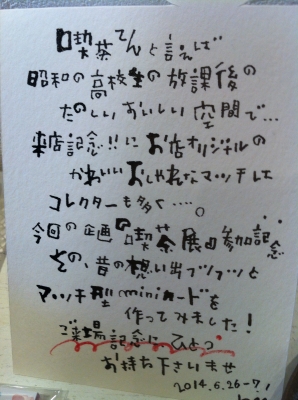 喫茶てんと言えば
昭和の高校生の放課後の
たのしいおいしい空間で…
来店記念!!にお店オリジナルの
かわいいおしゃれなマッチして
コレクターも多く…。
今回の企画『喫茶展』参加記念
その、昔の想い出ブツブツと
マッチ型miniカードを
作ってみました!
ご来場記念にひとつ
お持ち下さいませ
2014.6.26-7.1